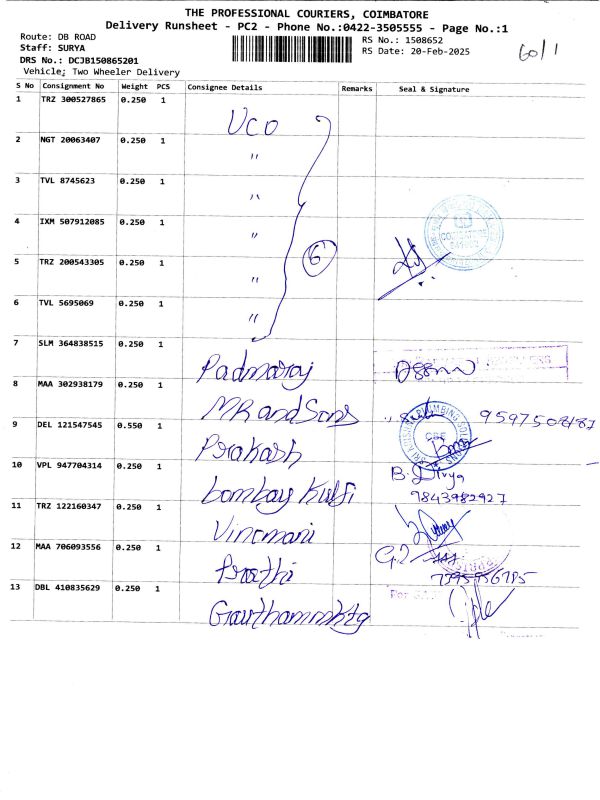 THE PROFESSIONAL COURIERS, COIMBATORE
Delivery Runsheet - PC2 - Phone No.:0422-3505555 - Page No.:1
Route: DB ROAD
RS No.: 1508652
60/1
Staff: SURYA
RS Date: 20-Feb-2025
DRS No.: DCJB150865201
Vehicle: Two Wheeler Delivery
S No Consignment No Weight PCS Consignee Details Remarks Seal & Signature
1 TRZ 300527865 0.250 1
UCO
2 NGT 20063407 0.250 1
"
3 TVL 8745623 0.250 1
"
4 IXM 507912085 0.250 1
"
6
5 TRZ 200543305 0.250 1
"
6 TVL 5695069 0.250 1
"
7 SLM 364838515 0.250 1
Padmaraj
8 MAA 302938179 0.250 1
MR and Sons
9 DEL 121547545 0.550 1
Prakash
10 VPL 947704314 0.250 1
bombay Kulfi B. Divya
9843982927
11 TRZ 122160347 0.250 1
Vinomani
12 MAA 706093556 0.250 1
Preethi
13 DBL 410835629 0.250 1
Gauthammktg